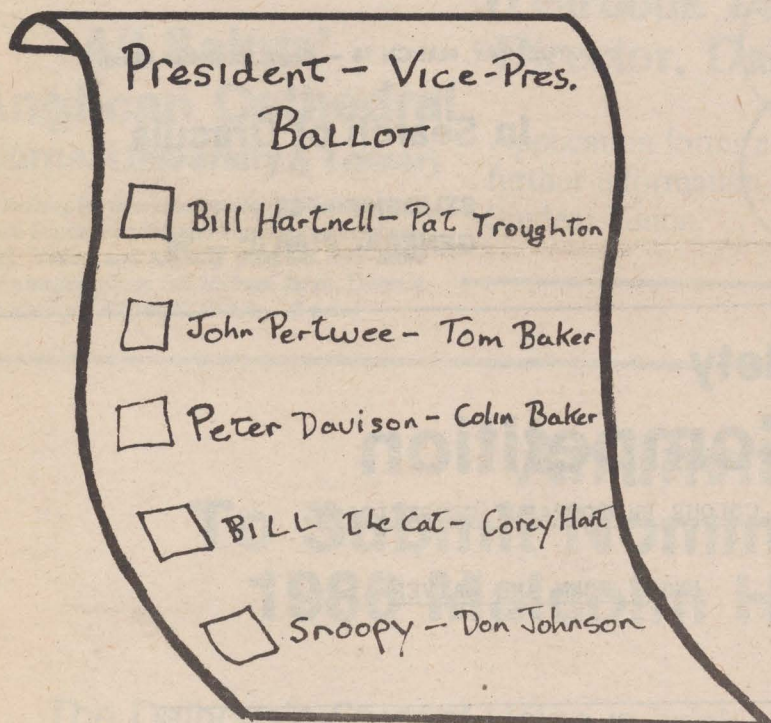 President - Vice-Pres.
Ballot
Bill Hartnell - Pat Troughton
John Pertwee - Tom Baker
Peter Davison - Colin Baker
BILL the Cat - Corey Hart
Snoopy - Don Johnson